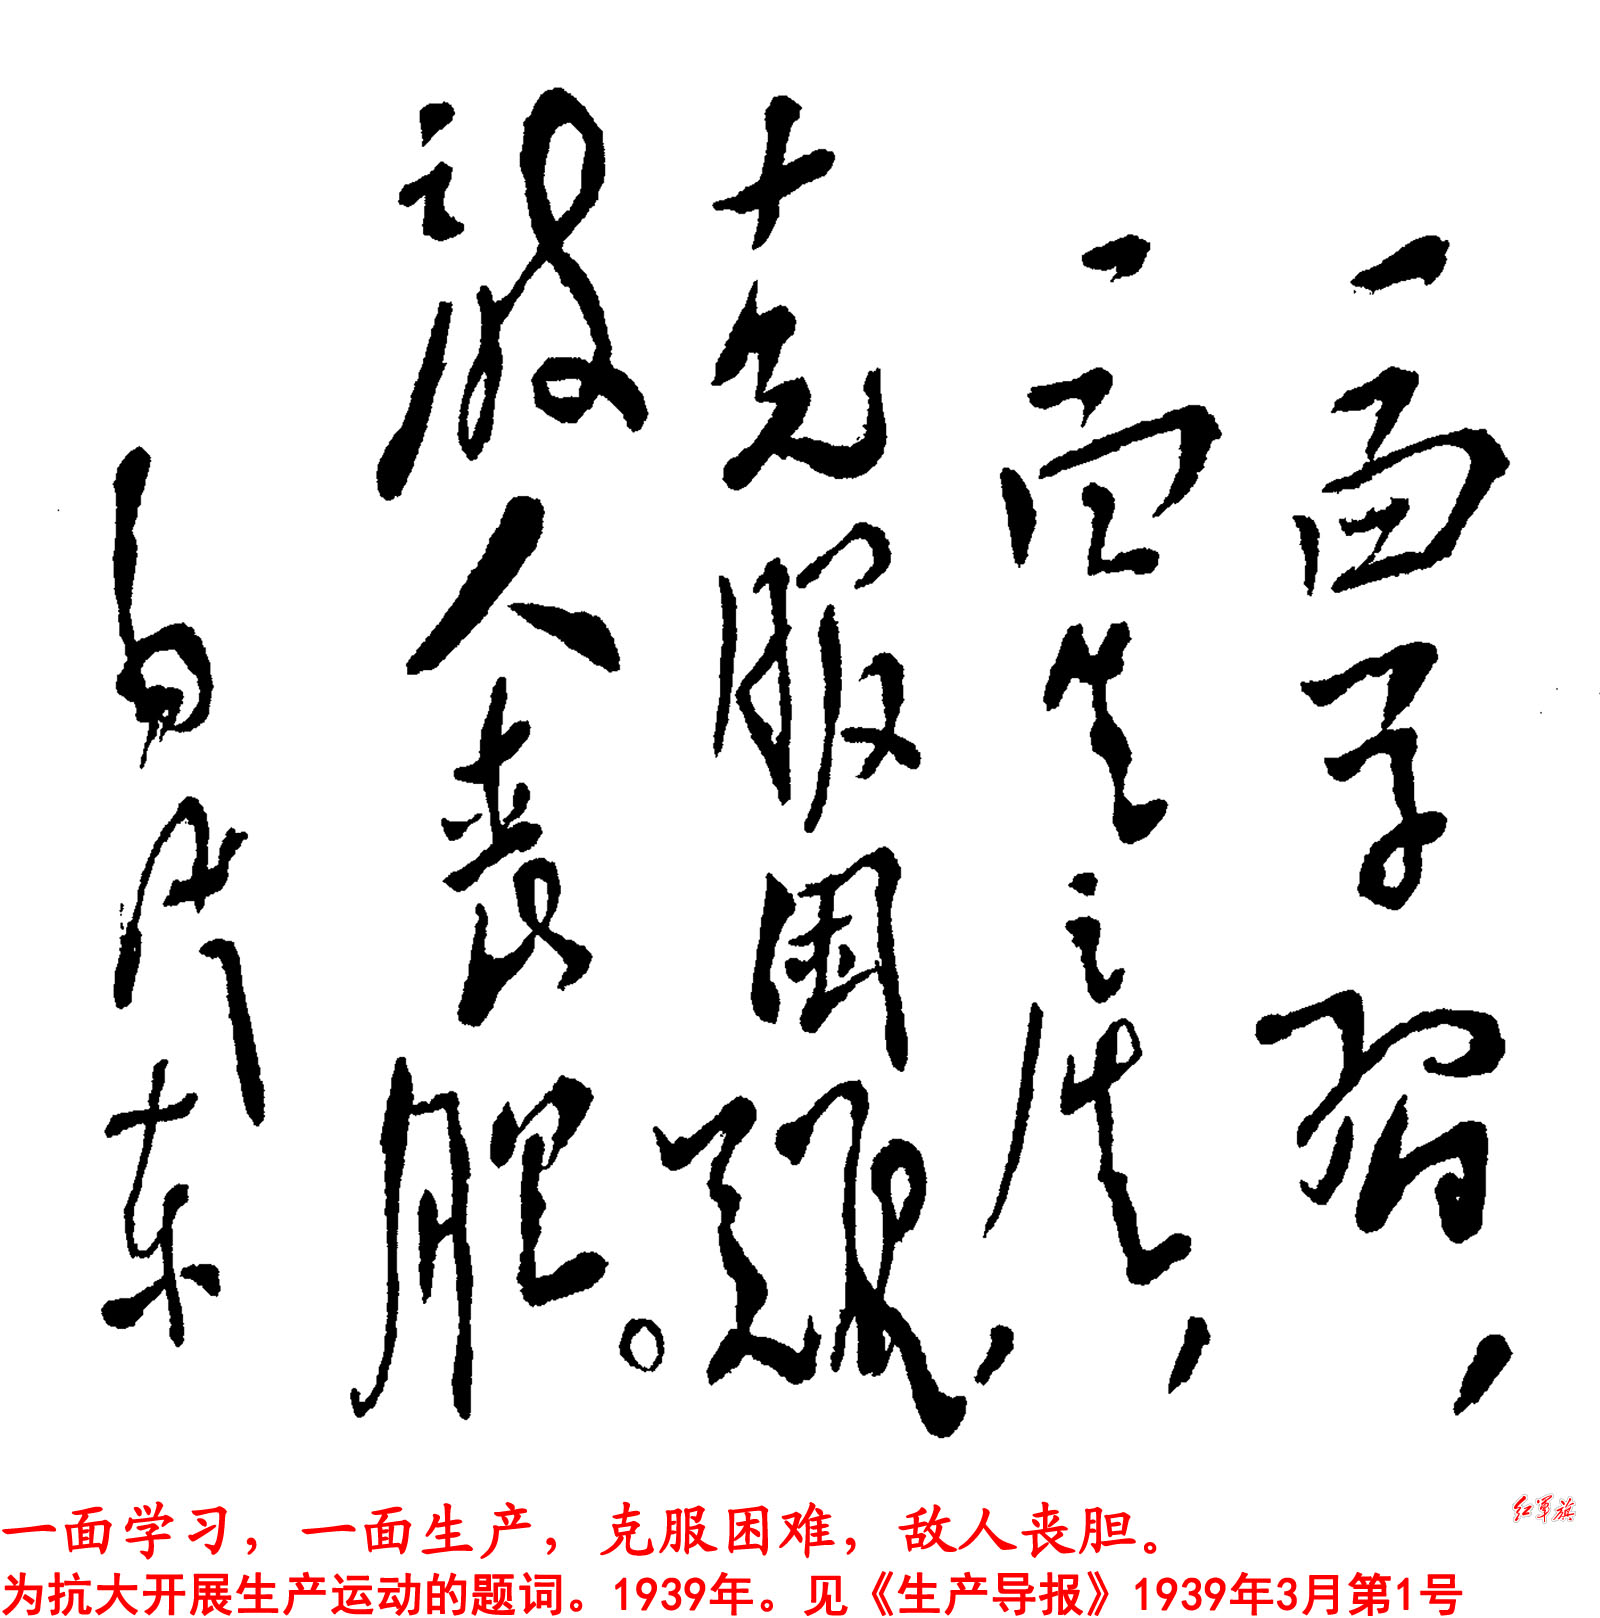 一面学习，
一面生产，
克服困难，
敌人丧胆。
毛泽东
一面学习，一面生产，克服困难，敌人丧胆。
红军旗
为抗大开展生产运动的题词。1939年。见《生产导报》1939年3月第1号